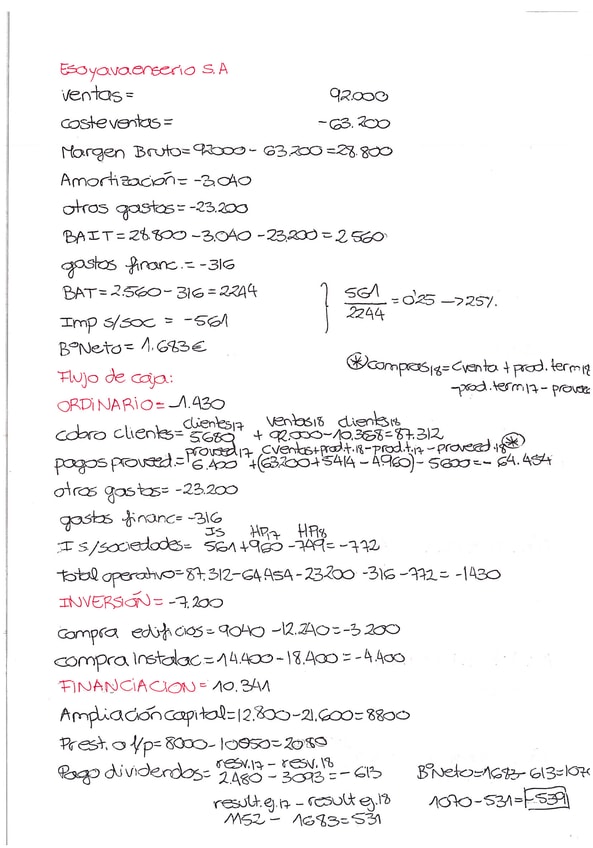 Esoyavaenserio S.A
ventas = 92.000
coste ventas = -63.200
Margen Bruto = 92000 - 63.200 = 28.800
Amortización = -3.040
otros gastos = -23.200
BAIT = 28.800 - 3.040 - 23.200 = 2.560
gastos financ. = -316
BAT = 2.560 - 316 = 2244
561/2244 = 0'25 → 25%.
Imp s/soc = -561
BºNeto = 1.683€
* compras18 = Cventa + prod. term 18
- prod. term 17 - provee
Flujo de caja:
ORDINARIO = -1.430
clientes17 ventas18 clientes18
cobro clientes = 5680 + 92.000 - 10.368 = 87.312
proveed17 Cventas + prod.t.18 - prod.t.17 - proveed.18 *
pagos proveed. = 6.400 + (63.200 + 5414 - 4.960) - 5600 = - 64.454
otros gastos = -23.200
gastos financ = -316
IS HP17 HP18
I s/sociedades = 561 + 960 - 749 = -772
total operativo = 87.312 - 64.454 - 23200 - 316 - 772 = -1430
INVERSIÓN = -7.200
compra edificios = 9040 - 12.240 = -3.200
compra Instalac = 14.400 - 18.400 = -4.400
FINANCIACION = 10.341
Ampliación capital = 12.800 - 21.600 = 8800
Prest. a l/p = 8000 - 10050 = 2080
resv.17 - resv.18
Pago dividendos = 2.480 - 3093 = -613
BºNeto = 1683 - 613 = 1070
result.ej.17 - result ej.18
1152 - 1683 = 531
1070 - 531 = -539